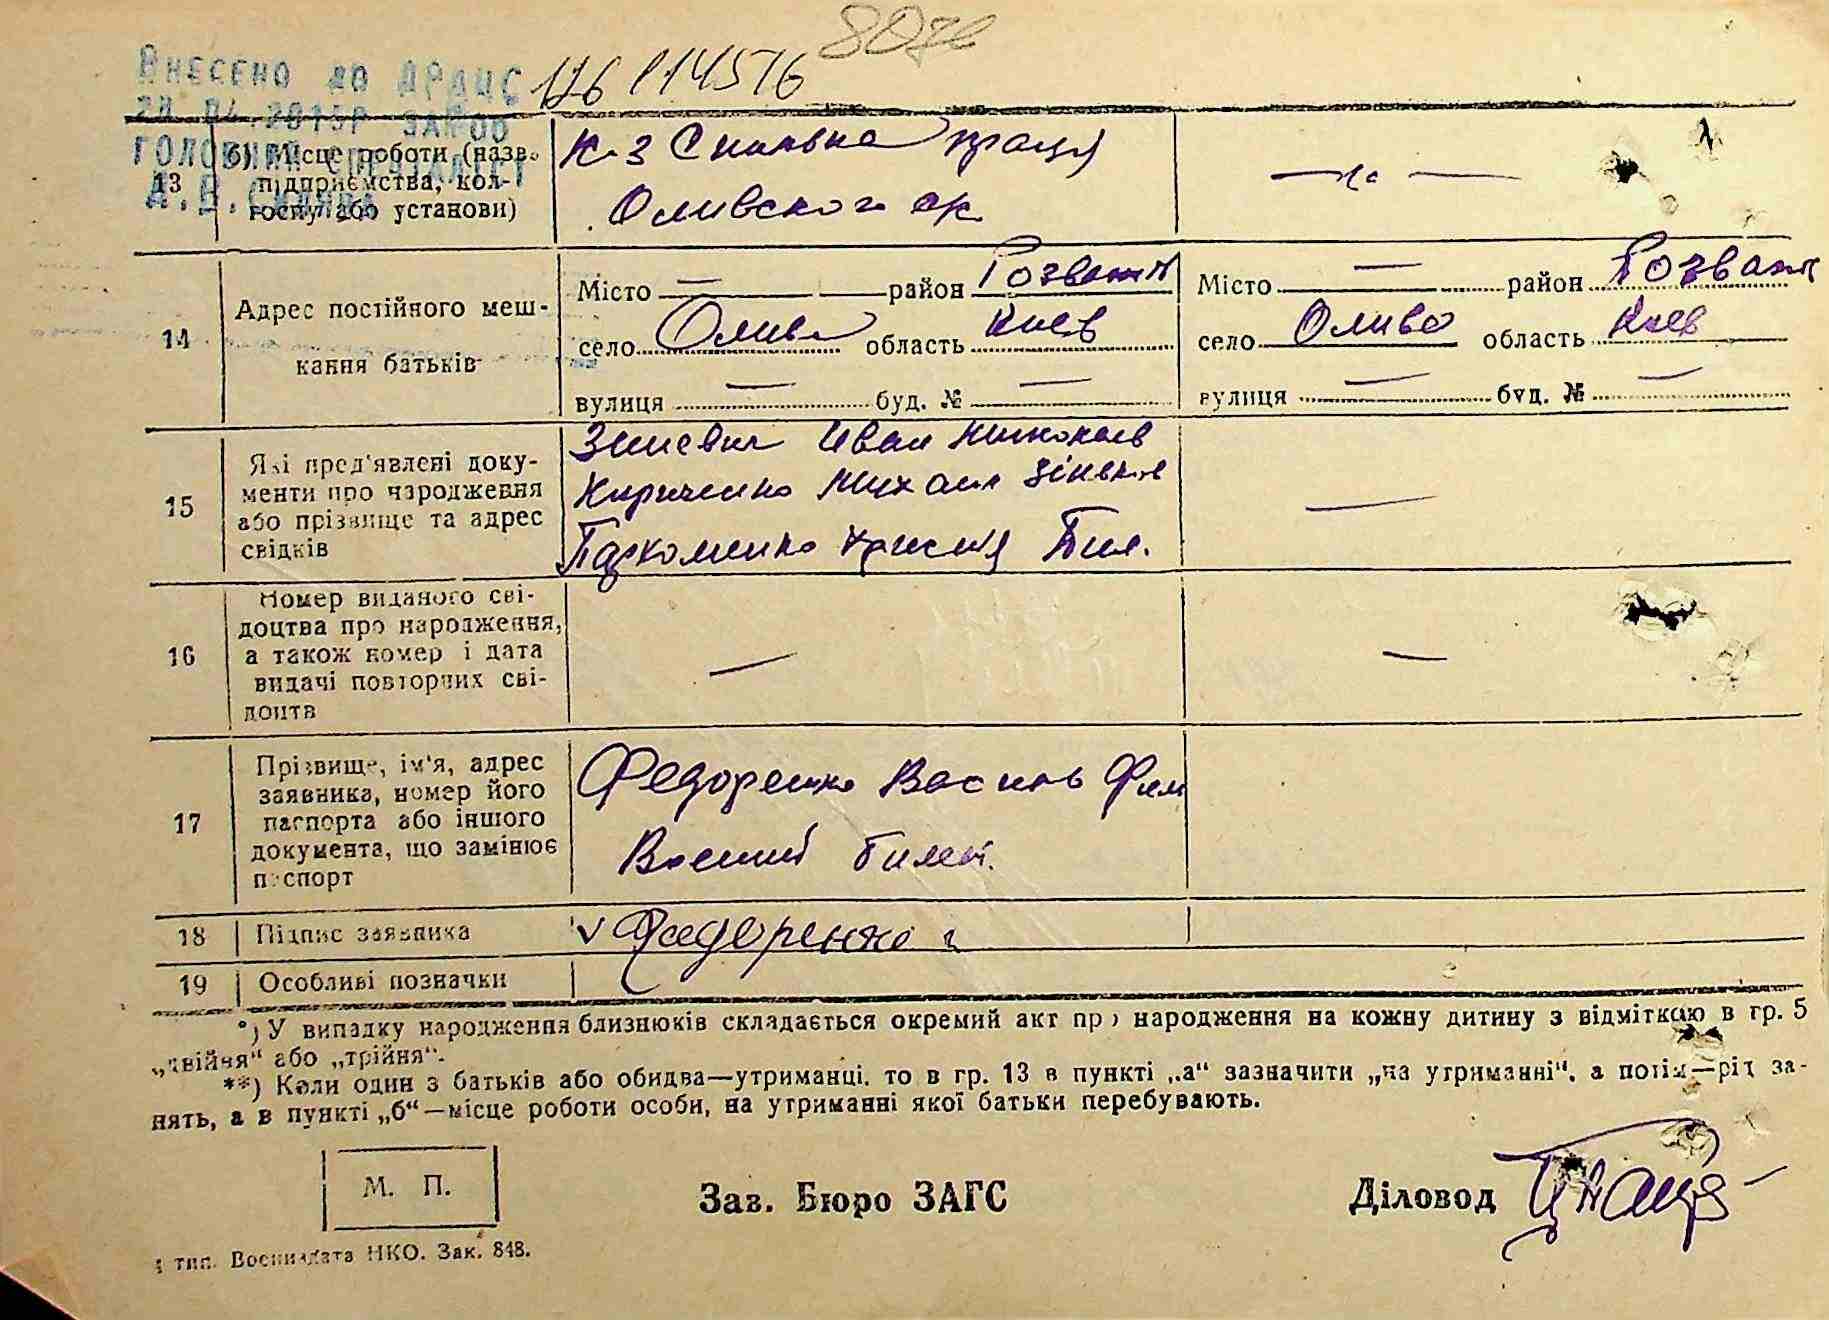 8076
ВНЕСЕНО ДО ДРАЦС
126 114576
ЗА №00
ГОЛОВНИЙ СПЕЦІАЛІСТ
13
б) Місце роботи (назва
підприємства, кол-
госпу або установи)
К-з Спильна праця
Оливского с/к
14
Адрес постійного меш-
кання батьків
Місто — район Розваж
село Олива область Киев
вулиця — буд. № —
Місто — район Розваж
село Олива область Киев
вулиця — буд. № —
15
Які пред'явлені доку-
менти про народження
або прізвище та адрес
свідків
Зиневич Иван Николаев
Кириченко Михаил Зіньков
Пархоменко
16
Номер виданого сві-
доцтва про народження,
а також номер і дата
видачі повторних сві-
доцтв
—
—
17
Прізвище, ім'я, адрес
заявника, номер його
паспорта або іншого
документа, що замінює
паспорт
Федоренко Василь Фил
Воений билет.
18
Підпис заявника
v Федоренко
19
Особливі позначки
*) У випадку народження близнюків складається окремий акт про народження на кожну дитину з відміткою в гр. 5
„двійня“ або „трійня“.
**) Коли один з батьків або обидва—утриманці, то в гр. 13 в пункті „а“ зазначити „на утриманні“, а потім—рід за-
нять, а в пункті „б“—місце роботи особи, на утриманні якої батьки перебувають.
М. П.
Зав. Бюро ЗАГС
Діловод
тип. Воениздата НКО. Зак. 848.